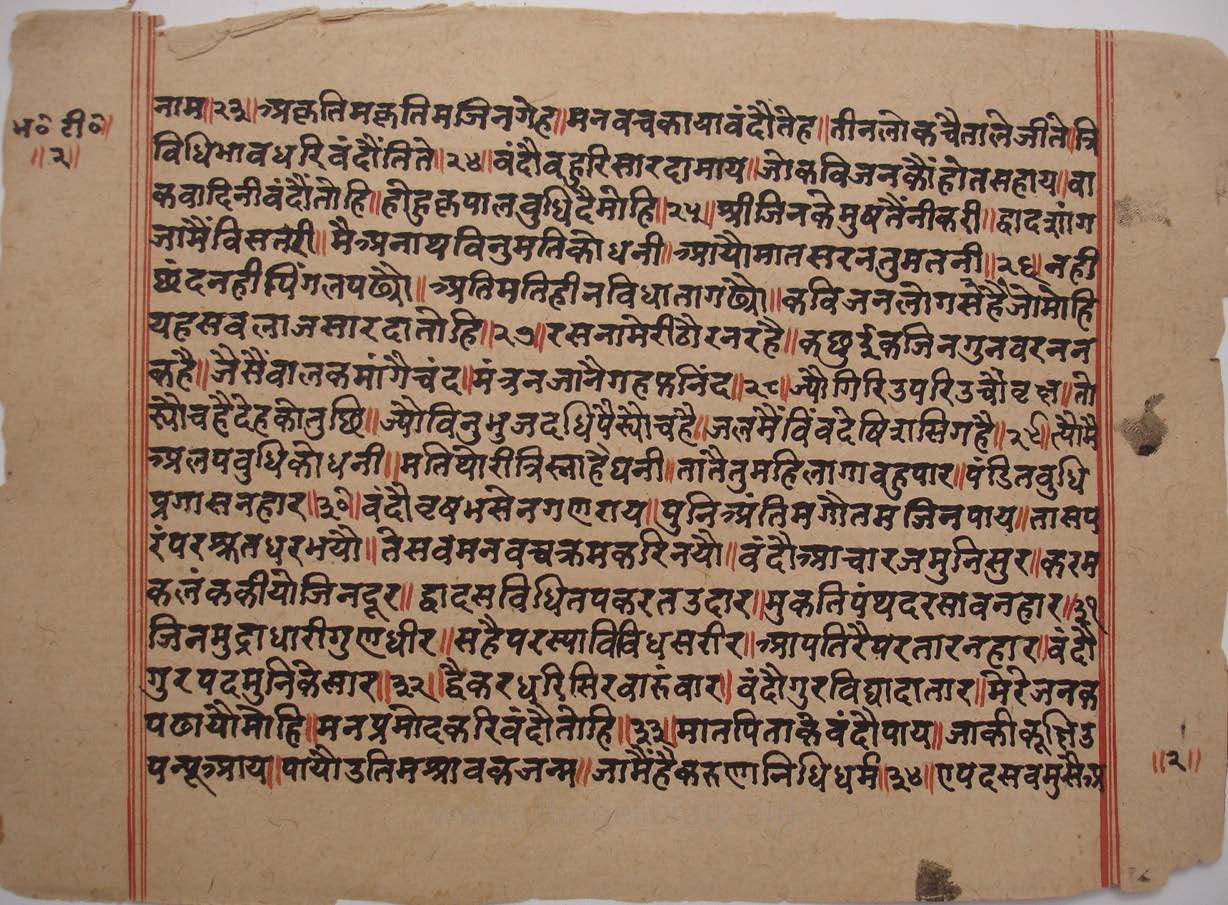 नाम॥२३॥अकृतिमकृतिमजिनगेह॥मनवचकायावंदौतेह॥तीनलोकचैतालेजीते॥त्रि
भ० टी०॥
॥२॥
विधिभावधरिवंदौंतिते॥२४॥वंदौवहुरिसारदामाय॥जोकविजनकौंहोतसहाय॥वा
कवादिनीवंदौंतोहि॥होहुकृपालवुधिदैमोहि॥२५॥श्रीजिनकेमुषतैंनीकरी॥द्वादशांग
जामैंविसतरी॥मैअनाथविनुमतिकोधनी॥आयौमातसरनतुमतनी॥२६॥नही
छंदनहीपिंगलपढ्यौ॥अतिमतिहीनविधातागढ्यौ॥कविजनलोगसहैजोमोहि
यहसवलाजसारदातोहि॥२७॥रसनामेरीठौरनरहै॥कछुइकजिनगुनवरनन
कहै॥जैसैंवालकमांगैचंद॥मंत्रनजानैगहफनिंद॥२८॥ज्यौगिरिउपरिउचौवृछ॥तो
स्यौचहैदेहकोतुछि॥ज्यौविनुभुजदधिपैस्यौचहै॥जलमैंविंवदेषिशसिगहै॥२९॥त्यौमै
अलपवुधिकोधनी॥मतिथोरीत्रिस्नाहैघनी॥तातैतुमहिलागावहुपार॥पंडितवुधि
प्रगासनहार॥३०॥वंदौवृषभसेनगणराय॥पुनिअंतिमगौतमजिनपाय॥तासप
रंपरश्रुतधरभयौ॥तेसवमनवचक्रमकरिनयौ॥वंदौआचारजमुनिसुर॥करम
कलंककीयोजिनदूर॥द्वादसविधितपकरतउदार॥मुकतिपंथदरसावनहार॥३१
जिनमुद्राधारीगुणधीर॥सहैपरस्याविविधसरीर॥आपतिरैपरतारनहार॥वंदौ
गुरपदमुनिकेसार॥३२॥द्वैकरधरिसिरवारंवार॥वंदौगुरविद्यादातार॥मेरेजनक
पढायौमोहि॥मनप्रमोदकरिवंदौतोहि॥३३॥मातपिताकेवंदौपाय॥जाकीकूषिउ
पन्यूआय॥पायौउतिमश्रावकजन्म॥जामैंहैकरुणानिधिधर्म॥३४॥एपदसवमुसैप्र
॥२॥